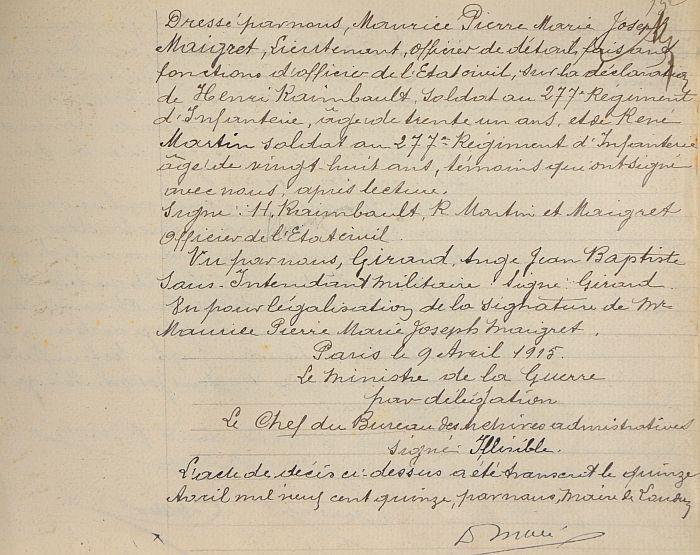 Dressé par nous, Maurice Pierre Marie Joseph
Maigret, Lieutenant, officier de détail, faisant
fonctions d'officier de l'Etat civil, sur la déclaration
de Henri Raimbault, soldat au 277e Régiment
d'Infanterie, âgé de trente un ans, et de René
Martin soldat au 277e Régiment d'Infanterie
âgé de vingt-huit ans, témoins qui ont signé
avec nous, après lecture.
Signé: H. Raimbault, R. Martin et Maigret
Officier de l'Etat civil.
Vu par nous, Girard, Ange Jean Baptiste
Sous-Intendant militaire. Signé: Girard.
Vu pour légalisation de la signature de Mr
Maurice Pierre Marie Joseph Maigret.
Paris le 9 Avril 1915.
Le Ministre de la Guerre
par délégation
Le Chef du Bureau des Archives administratives
signé: Illisible.
L'acte de décès ci-dessus a été transcrit le quinze
Avril mil neuf cent quinze, par nous, Maire de